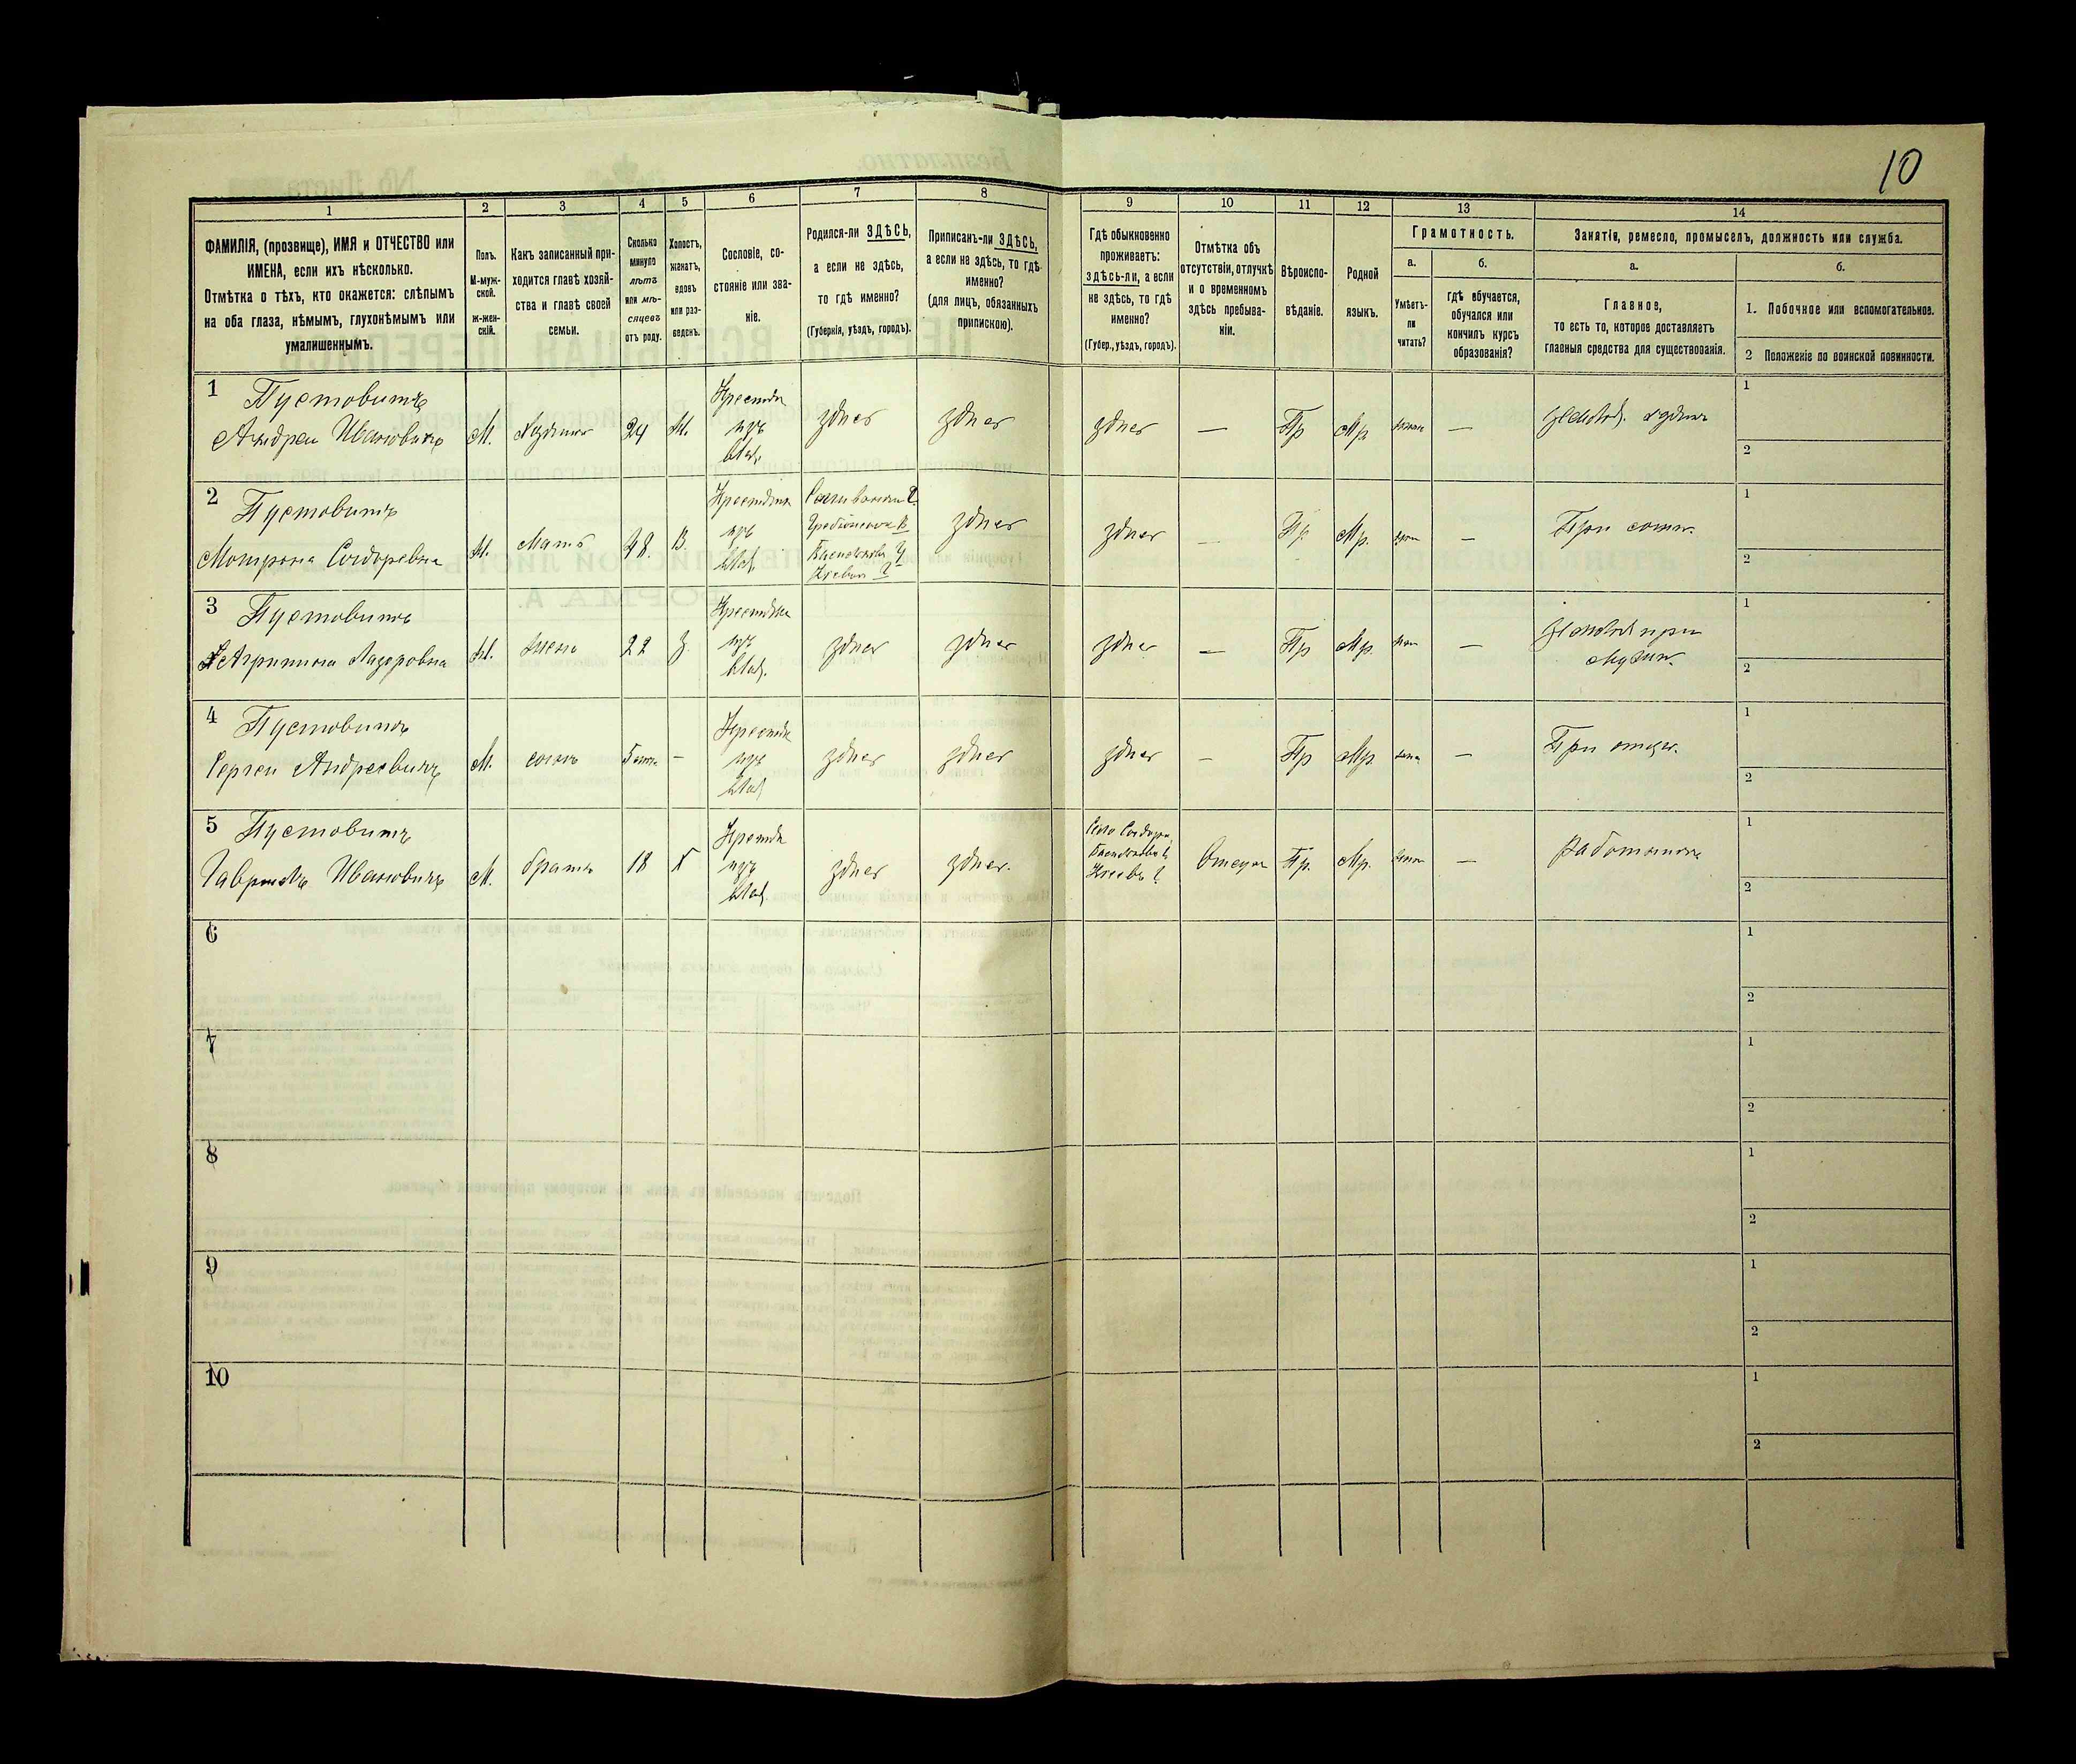 10
1
2
3
4
5
6
7
8
9
10
11
12
13
14
ФАМИЛІЯ, (прозвище), ИМЯ и ОТЧЕСТВО или
ИМЕНА, если ихъ нѣсколько.
Отмѣтка о тѣхъ, кто окажется: слѣпымъ
на оба глаза, нѣмымъ, глухонѣмымъ или
умалишеннымъ.
Полъ.
М-муж-
ской.
ж-жен-
скій.
Какъ записанный при-
ходится главѣ хозяй-
ства и главѣ своей
семьи.
Сколько
минуло
лѣтъ
или мѣ-
сяцевъ
отъ роду.
Холостъ,
женатъ,
вдовъ
или раз-
веденъ.
Сословіе, со-
стояніе или зва-
ніе.
Родился-ли ЗДѢСЬ,
а если не здѣсь,
то гдѣ именно?
(Губернія, уѣздъ, городъ).
Приписанъ-ли ЗДѢСЬ,
а если не здѣсь, то гдѣ
именно?
(для лицъ, обязанныхъ
припискою).
Гдѣ обыкновенно
проживаетъ:
здѣсь-ли, а если
не здѣсь, то гдѣ
именно?
(Губер., уѣздъ, городъ).
Отмѣтка объ
отсутствіи, отлучкѣ
и о временномъ
здѣсь пребыва-
ніи.
Вѣроиспо-
вѣданіе.
Родной
языкъ.
Грамотность.
а.
Умѣетъ-
ли
читать?
б.
гдѣ обучается,
обучался или
кончилъ курсъ
образованія?
Занятія, ремесло, промыселъ, должность или служба.
а.
Главное,
то есть то, которое доставляетъ
главныя средства для существованія.
б.
1. Побочное или вспомогательное.
2 Положеніе по воинской повинности.
1 Пустовитъ
Андрей Ивановичъ
М.
Хозяинъ
24
Ж.
изъ
влад.
здѣсь
здѣсь
здѣсь
—
Пр
Мр
—
1
2
2 Пустовитъ
Мотрона Сидоревна
Ж.
Мать
48.
В.
изъ
влад.
здѣсь
здѣсь
—
Пр.
Мр.
—
При сынѣ.
1
2
3 Пустовитъ
Агрипина Лазоровна
Ж.
жена
22
З.
изъ
влад.
здѣсь
здѣсь
здѣсь
—
Пр
Мр.
—
1
2
4 Пустовитъ
Сергей Андреевичъ
М.
сынъ
—
изъ
влад
здѣсь
здѣсь
здѣсь
—
Пр
Мр.
—
При отцѣ.
1
2
5 Пустовитъ
Гаврилъ Ивановичъ
М.
братъ
18
Х
изъ
влад.
здѣсь
здѣсь.
Пр.
Мр.
—
Работникъ
1
2
6
1
2
7
1
2
8
1
2
9
1
2
10
1
2